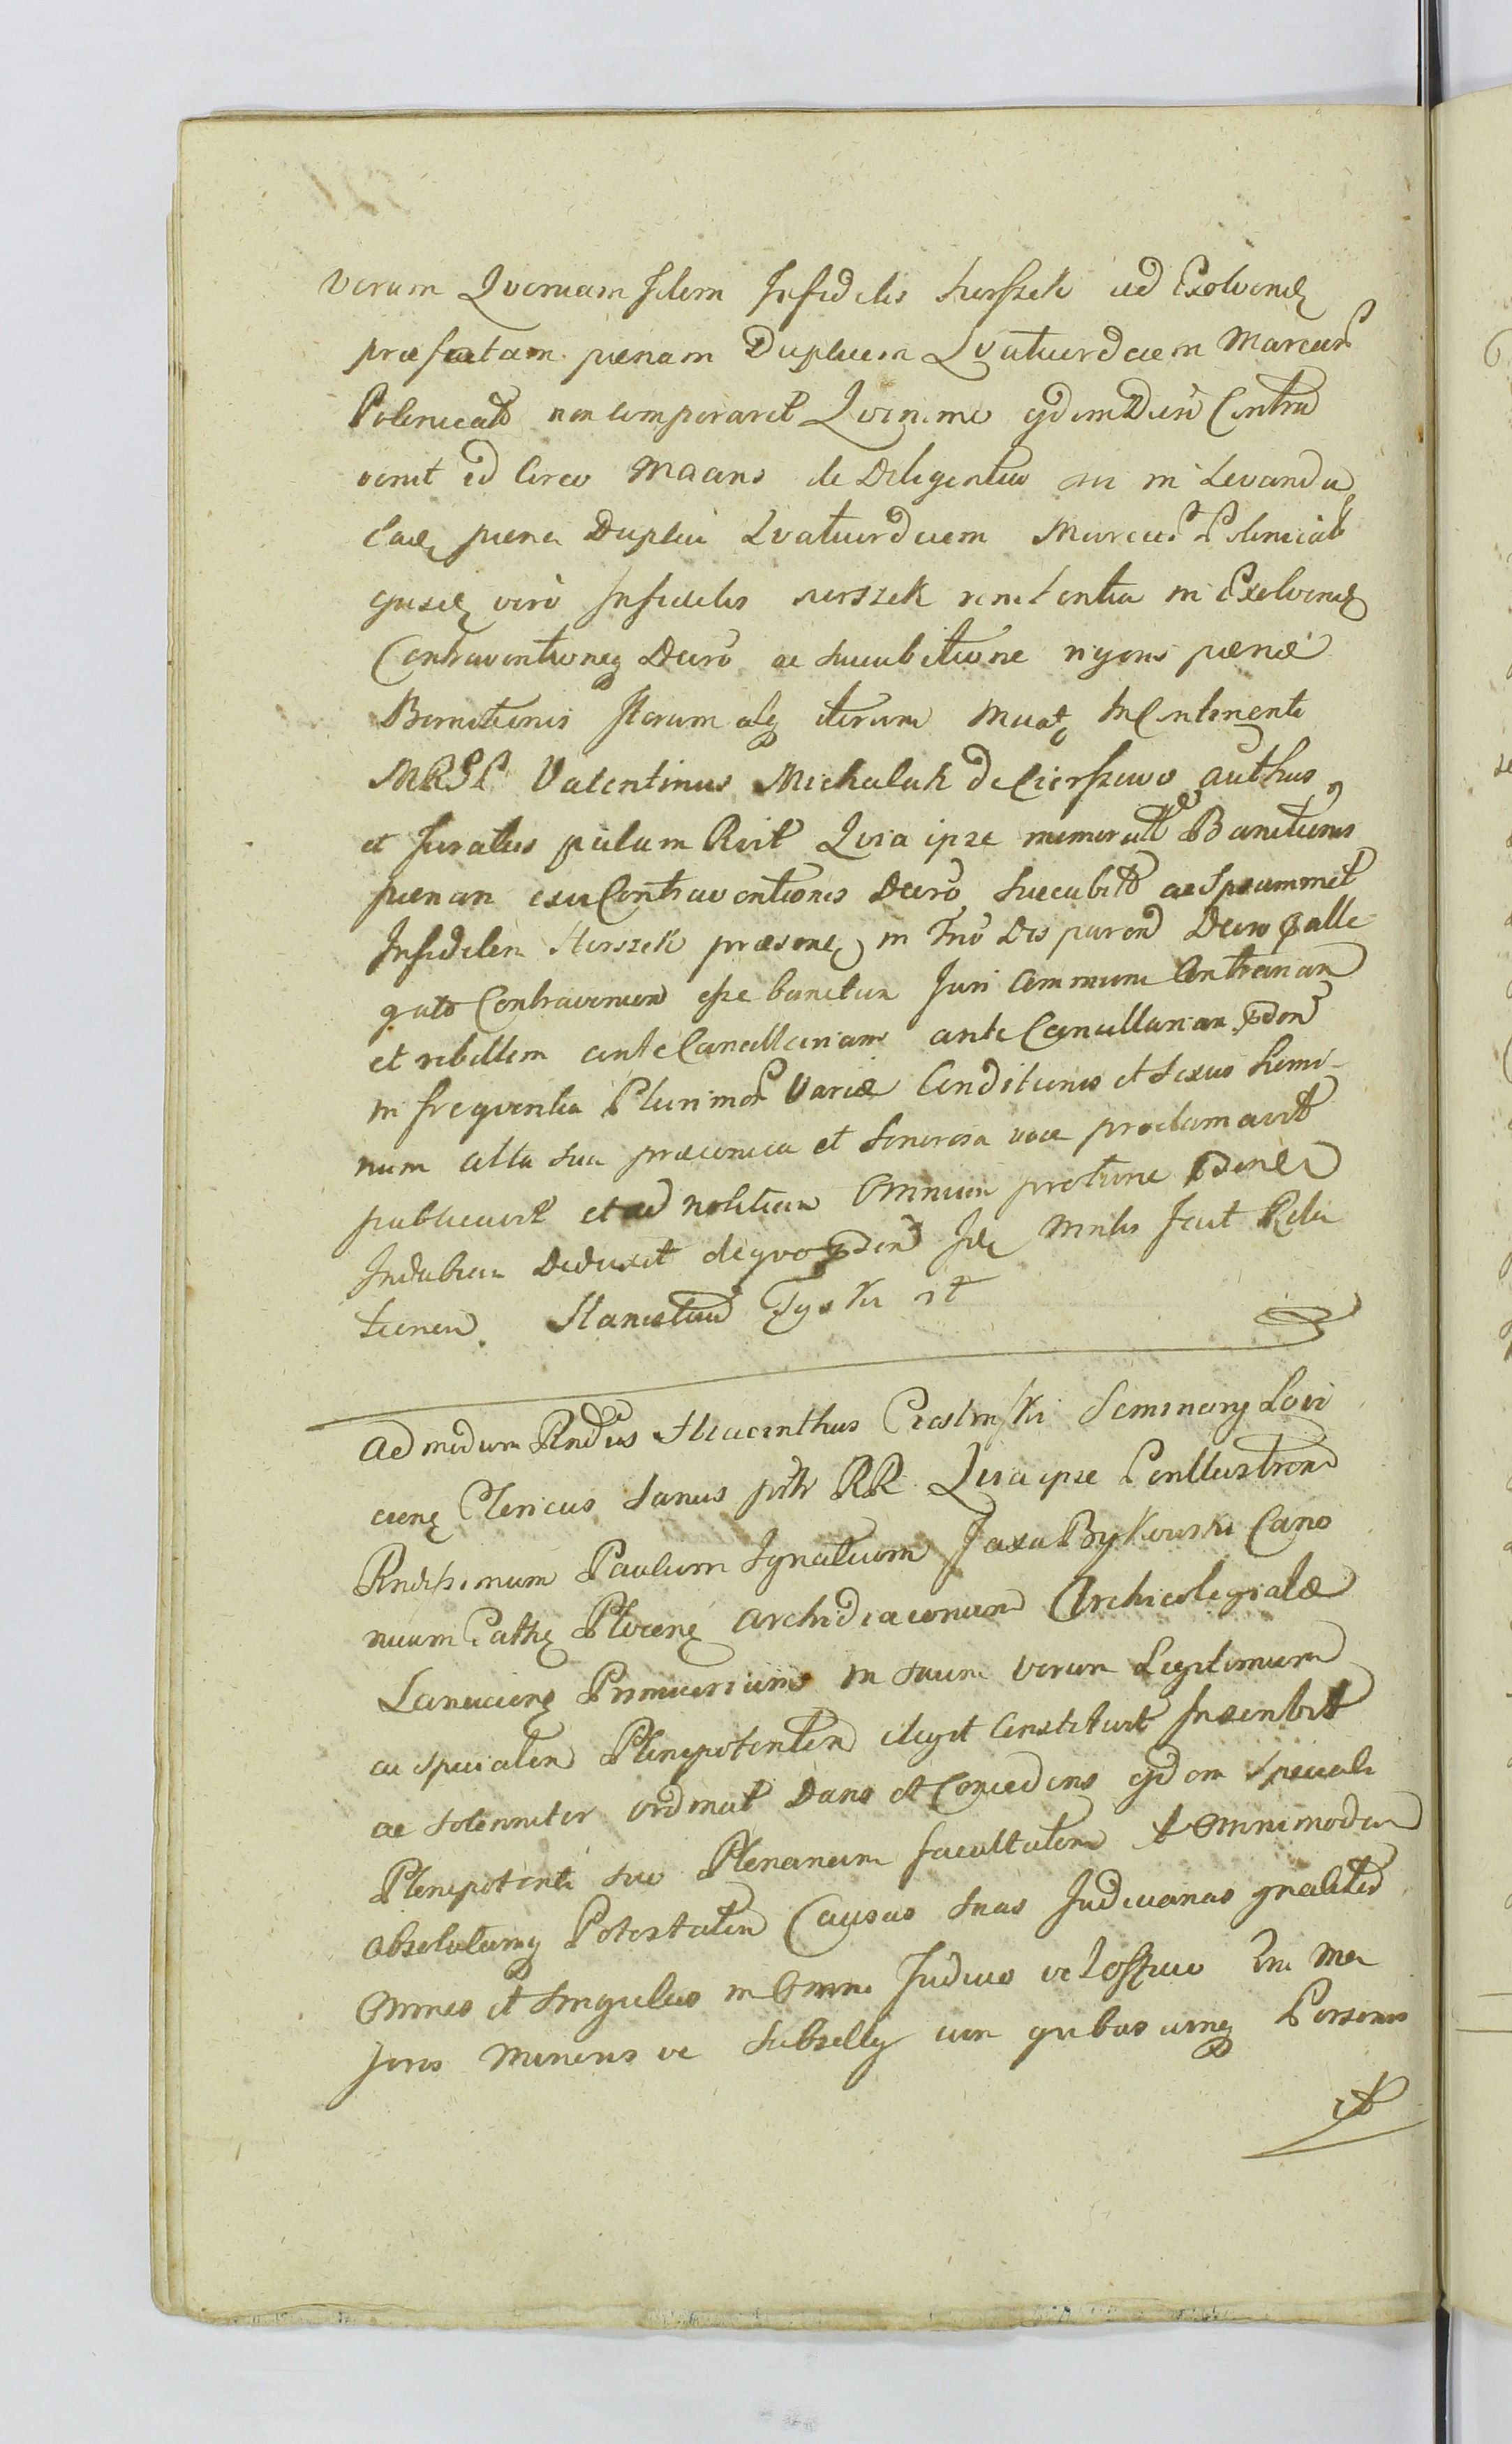 Verum Qvoniam Idem Infidelis Herszek ad Exolvend
præfatam pœnam Duplicem Qvatuordecem Marcar
Polonicalt non comparavit Qvinimo ejdem Decro Contra
venit id Circo Maans de Diligentia sui in Levanda
Eade pœna Duplici Qvatuordecem Marcar Polonicalt
ejusde vero Infidelis Herszek renitentia in Exolvend
Contraventioneq Decro ac succubitione rigoris pœnæ
Banitionis Iterum atq iterum In Continenti
MRGL Valentinus Michalak de Cierszewo authus
et Juratus palam Rvit Qvia ipse memoratt Banitionis
pœnam ex vi Contraventionis Decro succubito ac Ipsummet
Infidelem Herszek præsone in Trno Disparend Decro alle
gato Contravenien esse banitum Juri Communi Contrarium
et rebellem ante Cancellariam ante Cancellariam pdon
in freqventia Plurimor Variæ Conditionis et Sexus homi-
num alta sua præconica et Sonorosa voce proclamavit
publicavit et ad notitiam Omnium protunc
Indubiam Deduxit de qvo Ide Mnlis fecit Rela
tionem. Stanislaus Tyski
Admodum Rndus Hiacinthus Seminary Lovi
ciens Clericus Sanus RR Qvia ipse Perillustrem
Rndissimum Paulum Ignatium Jaxa Bykowski Cano
nicum Cathe Plocens Archidiaconum Archicolegiatæ
Lanciciens Primicerium in suum verum Legitimum
ac specialem Plenipotentem elegit Constituit Inscribit
ac solenniter ordinat Dans et Concedens ejdem speciali
Plenipotenti suo Plenariam facultatem et Omnimodam
absolutamq Potestatem Causas suas Judiciarias gnaliter
Omnes et Singulas in Omni Judicio vel Officio
Joris Minoris ve Subselly cum qvibuscunq Personis